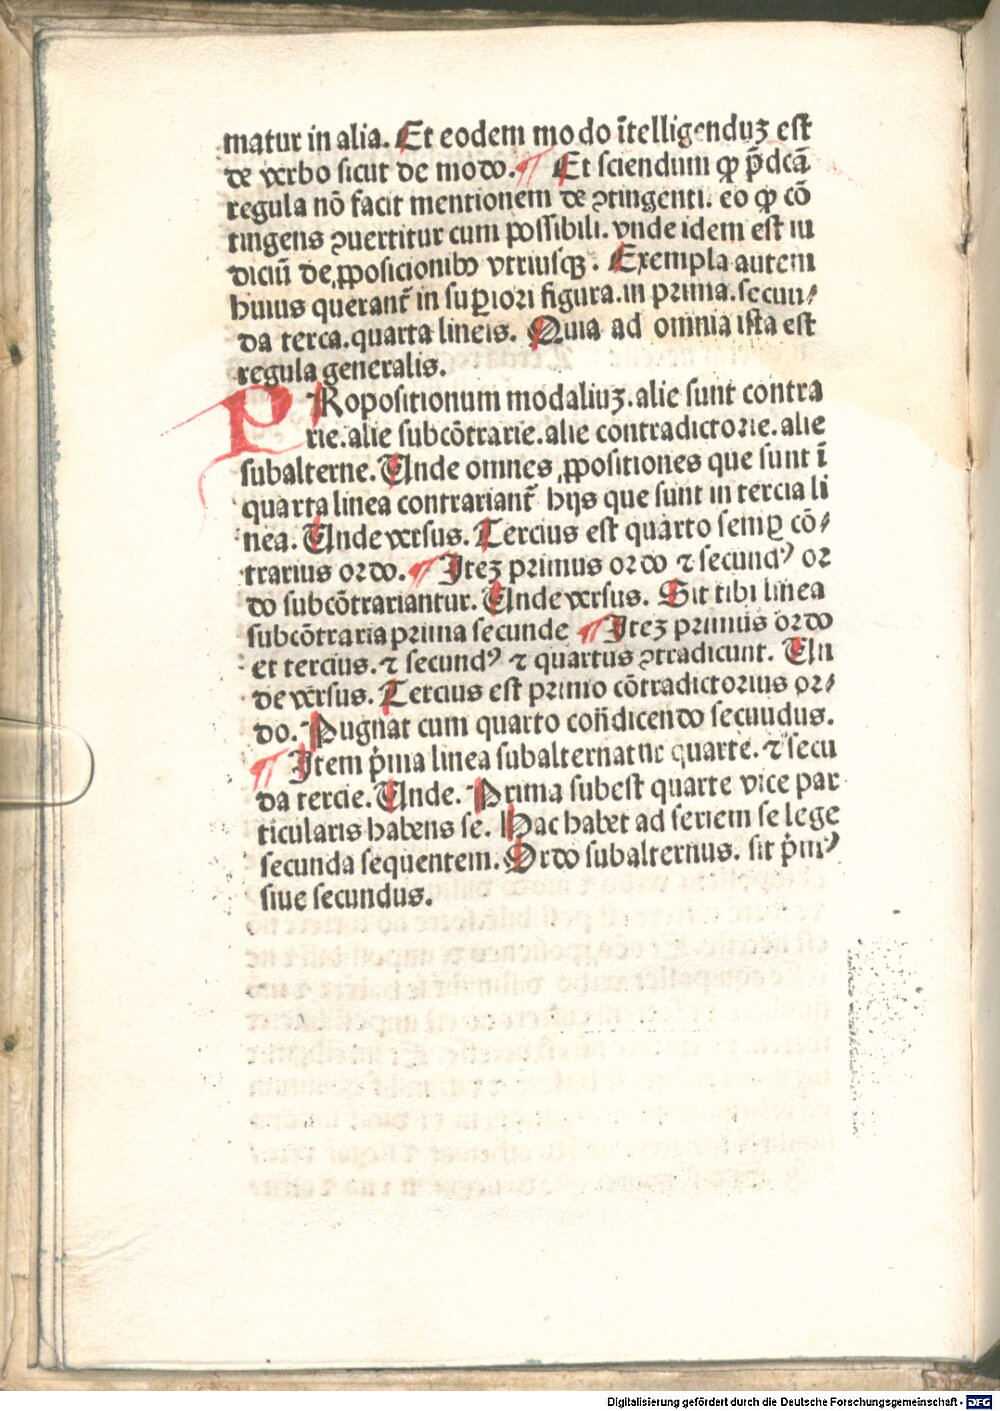 matur in alia. Et eodem modo ītelligenduʒ est
de verbo sicut de modo. ¶ Et sciendum ꝙ p̄dcā
regula nō facit mentionem de ꝯtingenti. eo ꝙ cō
tingens ꝯuertitur cum possibili. vnde idem est iu
diciū de ꝓposicionibꝰ vtriusqꝫ. Exempla autem
huius querant̄ in suꝑiori figura. in prima. secun⸗
da terca. quarta lineis. Quia ad omnia ista est
regula generalis.
PRopositionum modaliuʒ. alie sunt contra
rie. alie subcōtrarie. alie contradictorie. alie
subalterne. Unde omnes ꝓpositiones que sunt ī
quarta linea contrariant̄ hijs que sunt in tercia li
nea. Unde versus. Tercius est quarto semꝑ cō⸗
trarius ordo. ¶ Iteʒ primus ordo ⁊ secundꝰ or
do subcōtrariantur. Unde versus. Sit tibi linea
subcōtraria prima secunde ¶ Iteʒ primus ordo
et tercius. ⁊ secundꝰ ⁊ quartus ꝯtradicunt. Un
de versus. Tercius est primo cōtradictorius or⸗
do. Pugnat cum quarto con̄dicendo secuudus.
¶ Item p̍ma linea subalternatur quarte. ⁊ secu
da tercie. Unde. Prima subest quarte vice par
ticularis habens se. Hac habet ad seriem se lege
secunda sequentem. Ordo subalternus. sit p̍mꝰ
siue secundus.
Digitalisierung gefördert durch die Deutsche Forschungsgemeinschaft - DFG